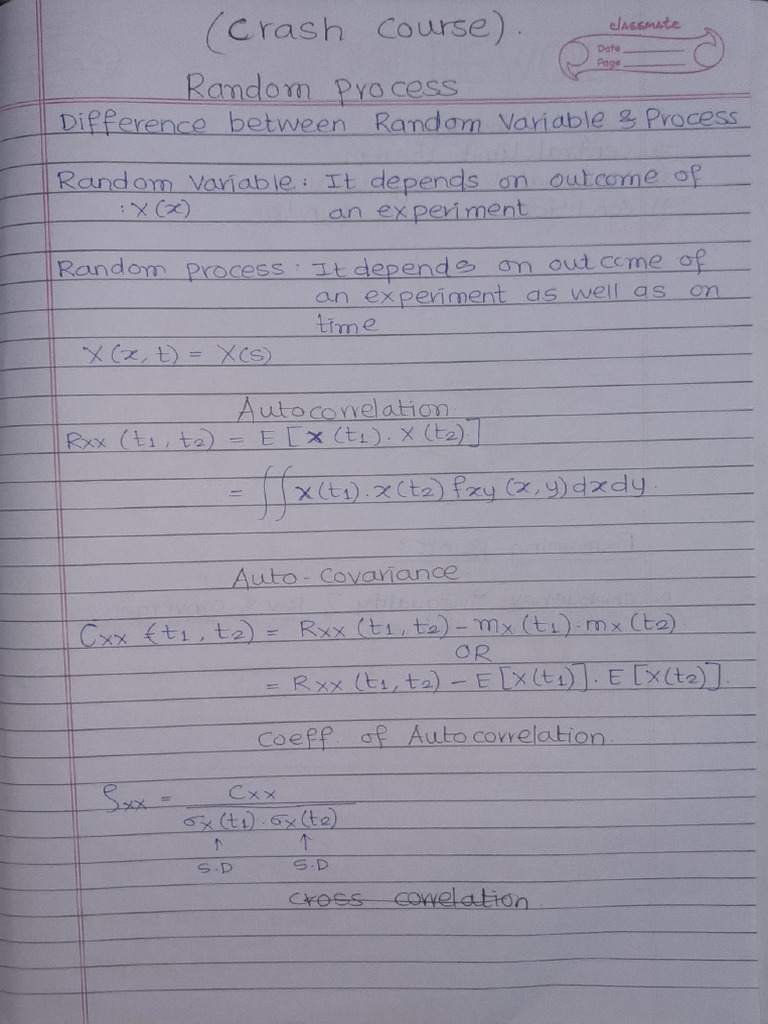 (Crash Course).
classmate
Date
Page
Random Process
Difference between Random Variable & Process
Random Variable: It depends on outcome of
: X(x) an experiment
Random Process: It depends on outcome of
an experiment as well as on
time
X(x, t) = X(s)
Autocorrelation
Rxx (t1, t2) = E [X(t1). X(t2)]
= ∬ x(t1). x(t2) fxy (x, y) dx dy.
Auto-Covariance
Cxx (t1, t2) = Rxx (t1, t2) - mx(t1). mx(t2)
OR
= Rxx (t1, t2) - E[X(t1)]. E[X(t2)].
Coeff. of Autocorrelation.
ρxx = Cxx
σx(t1). σx(t2)
↑ ↑
S.D S.D
Cross correlation